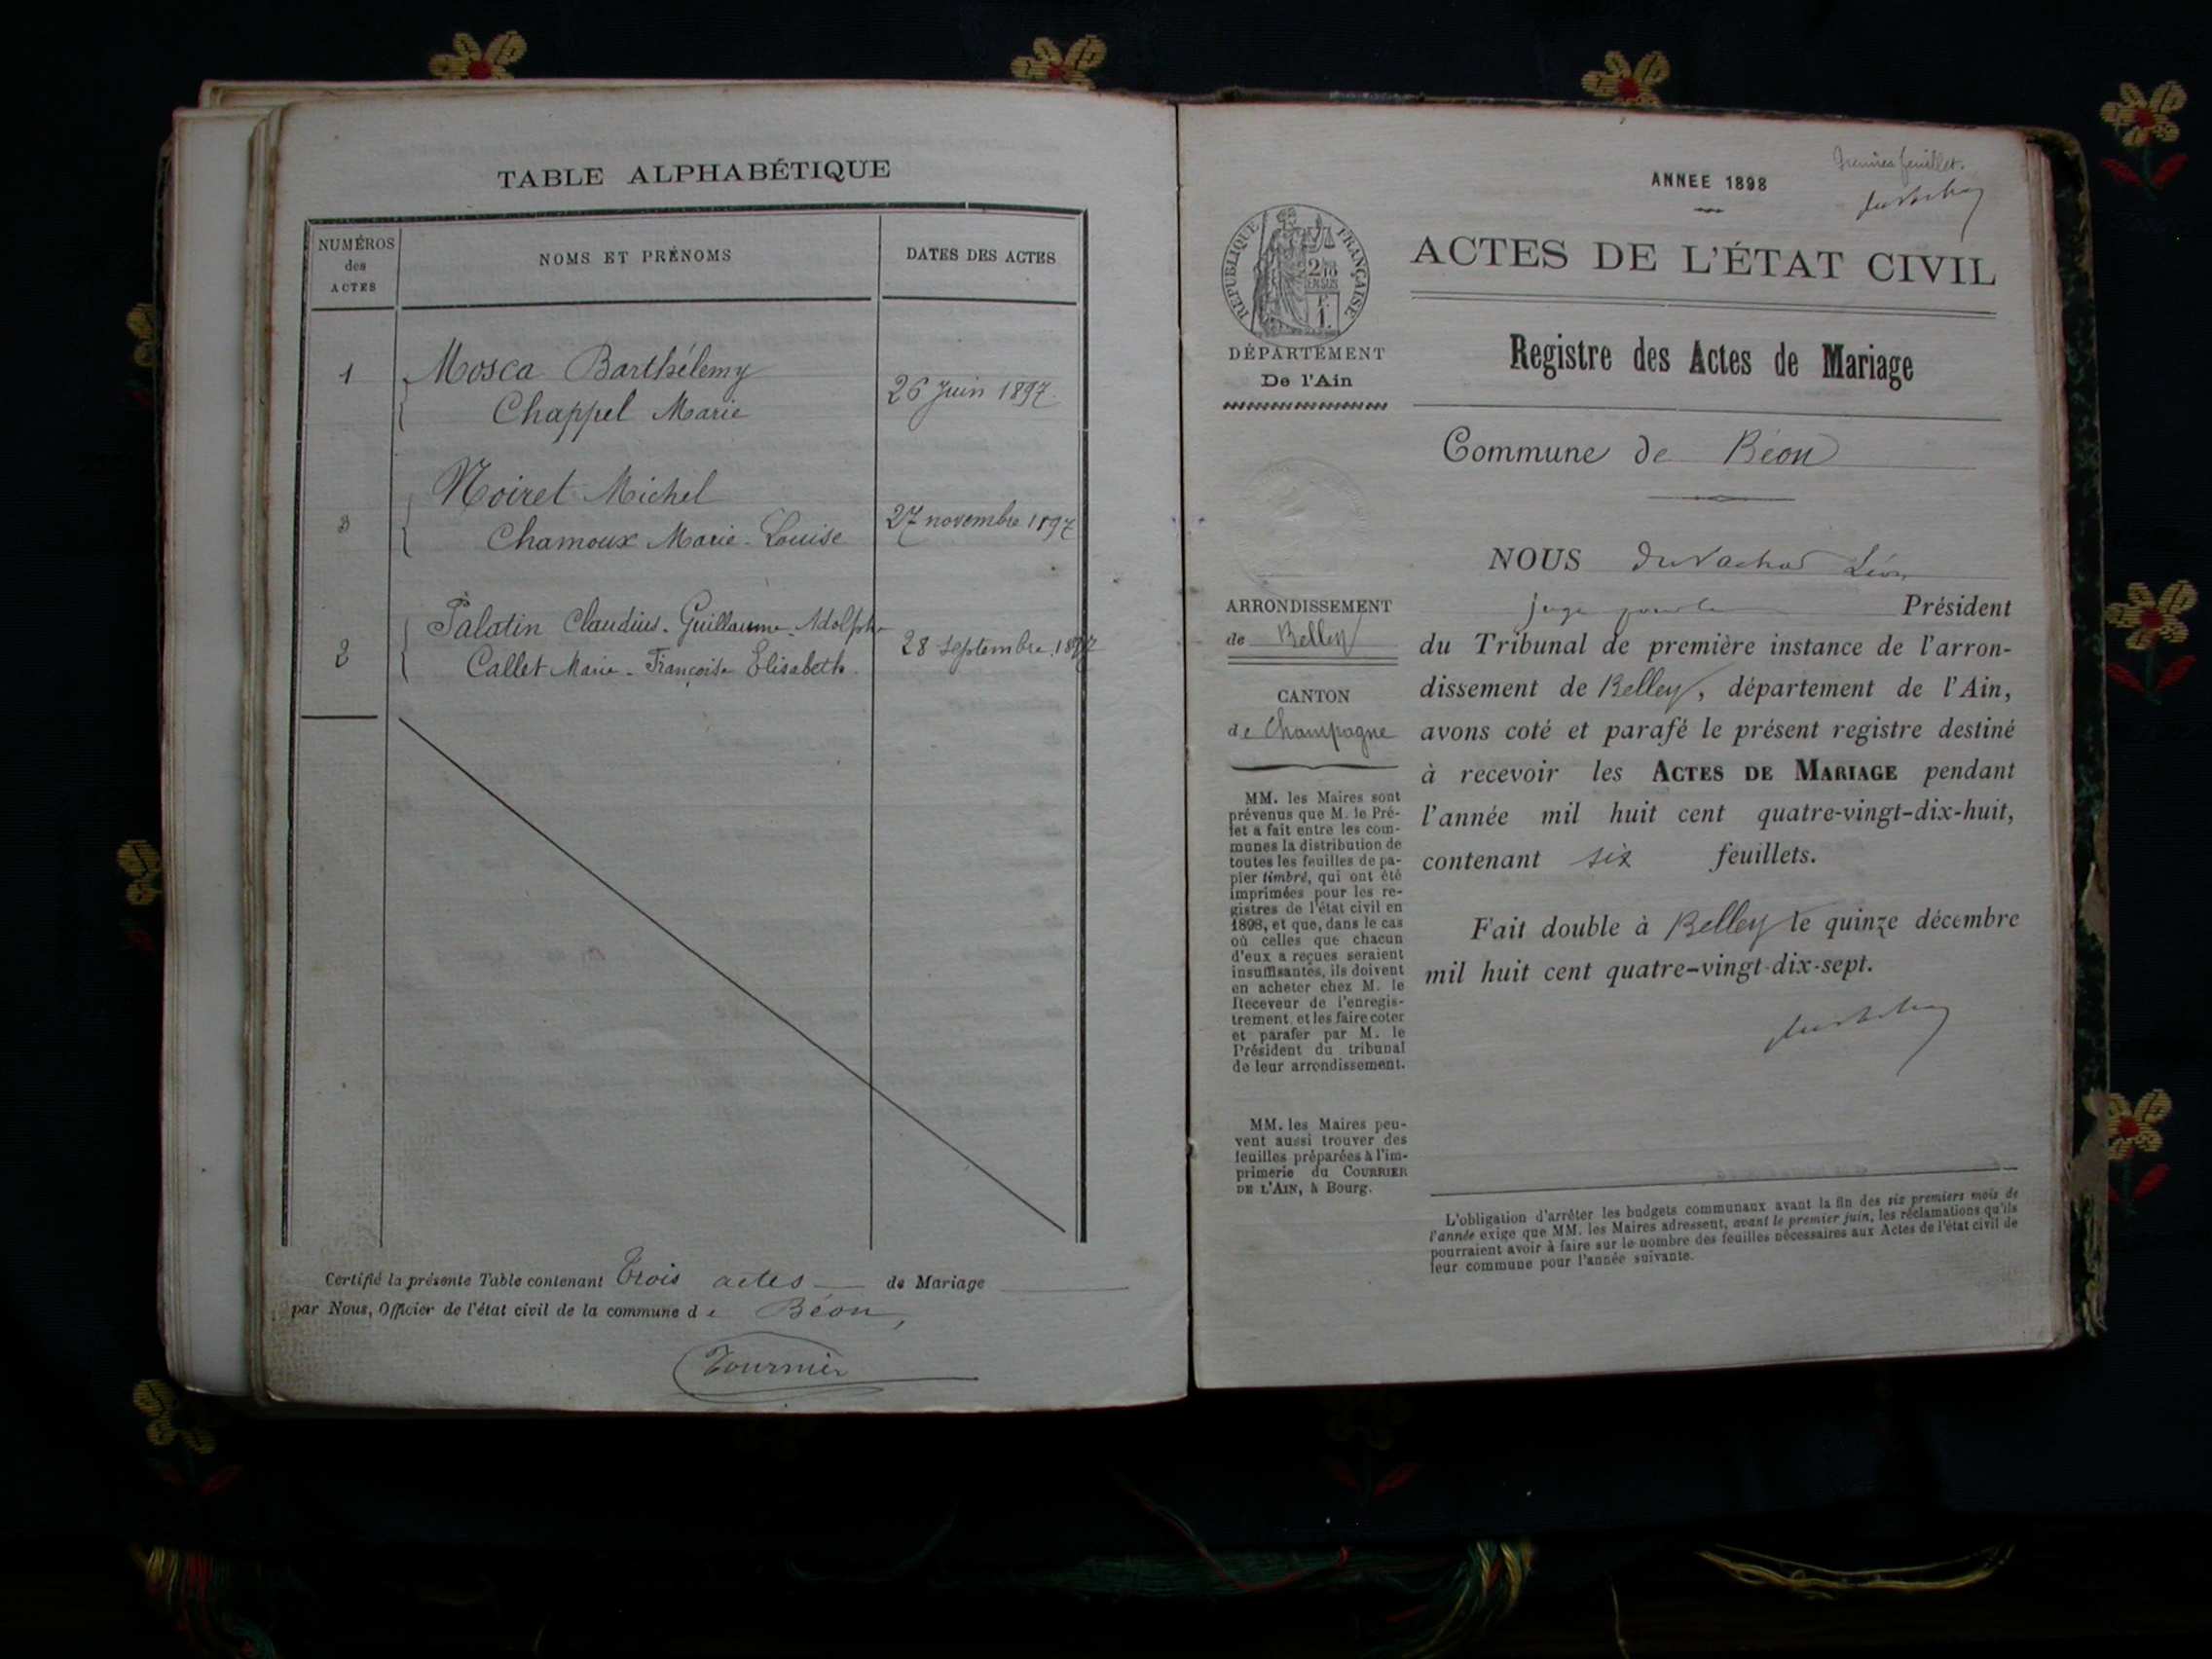 TABLE ALPHABÉTIQUE
NUMÉROS
des
ACTES
NOMS ET PRÉNOMS
DATES DES ACTES
1
Mosca Barthélemy
Chappel Marie
26 Juin 1897
3
Noiret Michel
Chamoux Marie-Louise
27 novembre 1897
2
Palatin Claudius-Guillaume-Adolphe
Callet Marie-Françoise Elisabeth.
28 septembre 1897
Certifié la présente Table contenant Trois actes de Mariage
par Nous, Officier de l'état civil de la commune de Béon,
Tournier
Premier feuillet.
ANNEE 1898
REPUBLIQUE FRANÇAISE
ACTES DE L'ÉTAT CIVIL
DÉPARTEMENT
De l'Ain
Registre des Actes de Mariage
Commune de Béon
NOUS Duvachat Léon
juge pour le Président
du Tribunal de première instance de l'arron-
dissement de Belley, département de l'Ain,
avons coté et parafé le présent registre destiné
à recevoir les ACTES DE MARIAGE pendant
l'année mil huit cent quatre-vingt-dix-huit,
contenant six feuillets.
Fait double à Belley le quinze décembre
mil huit cent quatre-vingt-dix-sept.
ARRONDISSEMENT
de Belley
CANTON
de Champagne
MM. les Maires sont
prévenus que M. le Pré-
fet a fait entre les com-
munes la distribution de
toutes les feuilles de pa-
pier timbré, qui ont été
imprimées pour les re-
gistres de l'état civil en
1898, et que, dans le cas
où celles que chacun
d'eux a reçues seraient
insuffisantes, ils doivent
en acheter chez M. le
Receveur de l'enregis-
trement, et les faire coter
et parafer par M. le
Président du tribunal
de leur arrondissement.
MM. les Maires peu-
vent aussi trouver des
feuilles préparées à l'im-
primerie du COURRIER
DE L'AIN, à Bourg.
L'obligation d'arrêter les budgets communaux avant la fin des six premiers mois de
l'année exige que MM. les Maires adressent, avant le premier juin, les réclamations qu'ils
pourraient avoir à faire sur le nombre des feuilles nécessaires aux Actes de l'état civil de
leur commune pour l'année suivante.